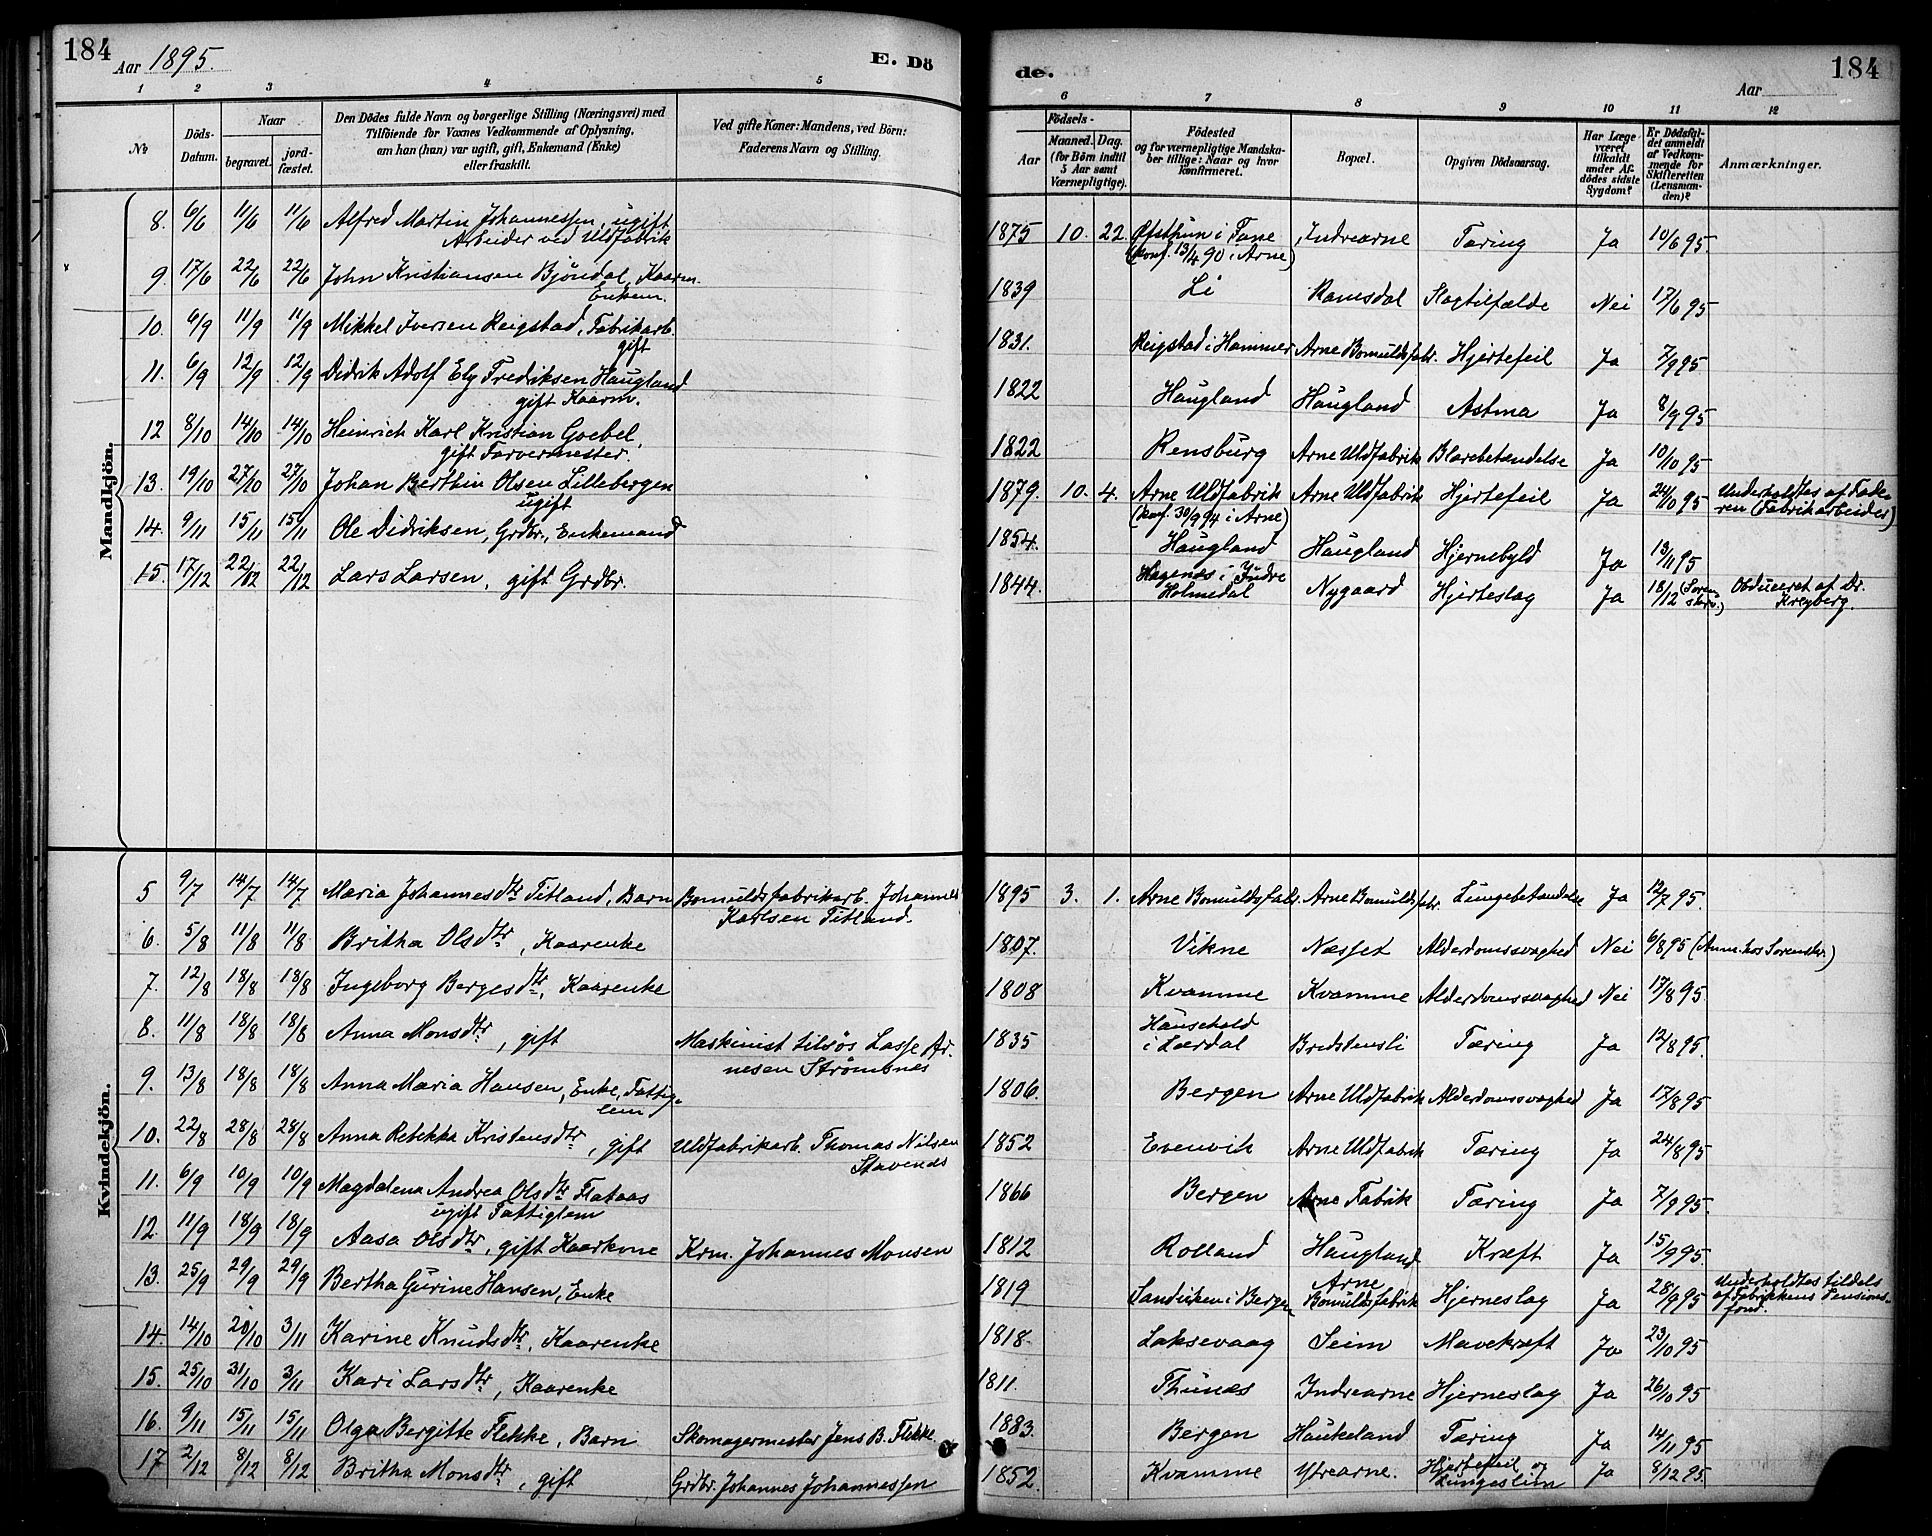 184
Aar 1895.
E. Dö
1 2 3 4 5
№
Döds-Datum.
Naar
begravet.
jord-fæstet.
Den Dödes fulde Navn og borgerlige Stilling (Næringsvei) med
Tilföiende for Voxnes Vedkommende af Oplysning,
om han (hun) var ugift, gift, Enkemand (Enke)
eller fraskilt.
Ved gifte Koner: Mandens, ved Börn:
Faderens Navn og Stilling.
Mandkjön.
8. 6/6 11/6 11/6 Alfred Martin Johannessen, ugift
Arbeider ved Uldfabrik
9. 17/6 22/6 22/6 John Kristiansen Bjöndal, Kaarm.
Enkem.
10. 6/9 11/9 11/9 Mikkel Iversen Reigstad, Fabrikarb.
gift
11. 6/9 12/9 12/9 Didrik Adolf Ely Fredriksen Haugland
gift Kaarm.
12 8/10 14/10 14/10 Heinrich Karl Kristian Goebel,
gift Farvermester.
13. 19/10 27/10 27/10 Johan Berthin Olsen Lillebergen
ugift
14. 9/11 15/11 15/11 Ole Didriksen, Grdbr., Enkemand
15. 17/12 22/12 22/12 Lars Larsen, gift Grdbr.
Kvindekjön.
5 9/7 14/7 14/7 Maria Johannesdtr Titland, Barn Bomuldsfabrikarb. Johannes
Karlsen Titland.
6. 5/8 11/8 11/8 Britha Olsdtr, Kaarenke
7. 12/8 18/8 18/8 Ingeborg Bergesdtr, Kaarenke
8. 11/8 18/8 18/8 Anna Monsdtr, gift Maskinist tilsös Lasse Ar-
nesen Strömsnes
9. 13/8 18/8 18/8 Anna Maria Hansen, Enke, Fattig-
lem
10. 22/8 28/8 28/8 Anna Rebekka Kristensdtr, gift Uldfabrikarb. Thomas Nilsen
Stavenes
11. 6/9 10/9 10/9 Magdalena Andrea Olsdtr Flataas
ugift Fattiglem
12. 11/9 18/9 18/9 Aasa Olsdtr, gift Kaarkone Krm. Johannes Monsen
13. 25/9 29/9 29/9 Bertha Gurine Hansen, Enke
14. 14/10 20/10 3/11 Karine Knudsdtr, Kaarenke
15. 25/10 31/10 3/11 Kari Larsdtr, Kaarenke
16. 9/11 15/11 15/11 Olga Bergitte Flekke, Barn Skomagermester Jens B. Flekke.
17 2/12 8/12 8/12 Britha Monsdtr, gift Grdbr. Johannes Johannessen
de.
Aar
184
6 7 8 9 10 11 12
Födsels-
Aar
Maaned. Dag.
(for Börn indtil
5 Aar samt
Værnepligtige).
Födested
og for værnepligtige Mandska-
ber tillige: Naar og hvor
konfirmeret.
Bopæl.
Opgiven Dödsaarsag.
Har Læge
været
tilkaldt
under Af-
dödes sidste
Sygdom?
Er Dödsfal-
det anmeldt
af Vedkom-
mende for
Skifteretten
(Lensman-
den)?
Anmærkninger.
1875 10. 22. Øfsthun i Fane Indrearne Tæring Ja 10/6 95
(konf. 13/4 90 i Arne)
1839 Li Ramsdal Slagtilfælde Nei 17/6 95
1831. Reigstad i Hammer Arne Bomuldsfabr. Hjertefeil Ja 7/9 95
1822 Haugland Haugland Astma Ja 8/9 95
1822 Rensburg Arne Uldfabrik Blærebetændelse Ja 10/10 95
1879. 10. 4. Arne Uldfabrik Arne Uldfabrik Hjertefeil Ja 24/10 95 Underholdtes af Fade-
(konf. 30/9 94 i Arne) ren (Fabrikarbeider)
1854. Haugland Haugland Hjernebyld Ja 13/11 95
1844. Hagenæs i Indre
Holmedal Nygaard Hjerteslag Ja 18/12 (Soren-
skriv.) Obduceret af Dr.
Kreyberg.
1895 3. 1. Arne Bomuldsfabr. Arne Bomuldsfabr. Lungebetændelse Ja 12/7 95.
1807. Vikne Næsset Alderdomssvaghed Nei 6/8 95 (Anm. hos Sorenskr.)
1808 Kvamme Kvamme Alderdomssvaghed Nei 17/8 95
1835 Hausehold
i Lærdal Bredstensli Tæring Ja 12/8 95.
1806. Bergen Arne Uldfabrik Alderdomssvaghed Ja 17/8 95
1852 Evenvik Arne Uldfabrik Tæring Ja 24/8 95
1866 Bergen Arne Fabrik Tæring Ja 7/9 95
1812 Rolland Haugland Kræft Ja 15/9 95.
1819 Sandviken i Bergen Arne
Bomuldsfabrik Hjerneslag Ja 28/9 95 Underholdtes tildels
af Fabrikkens Pensions-
fond.
1818. Laksevaag Seim Mavekræft Ja 23/10 95
1811. Thunæs Indrearne Hjerneslag Ja 26/10 95
1883. Bergen Haukeland Tæring Ja 14/11 95
1852. Kvamme Ytrearne. Hjertefeil og
Lungeslim Ja 8/12 95.